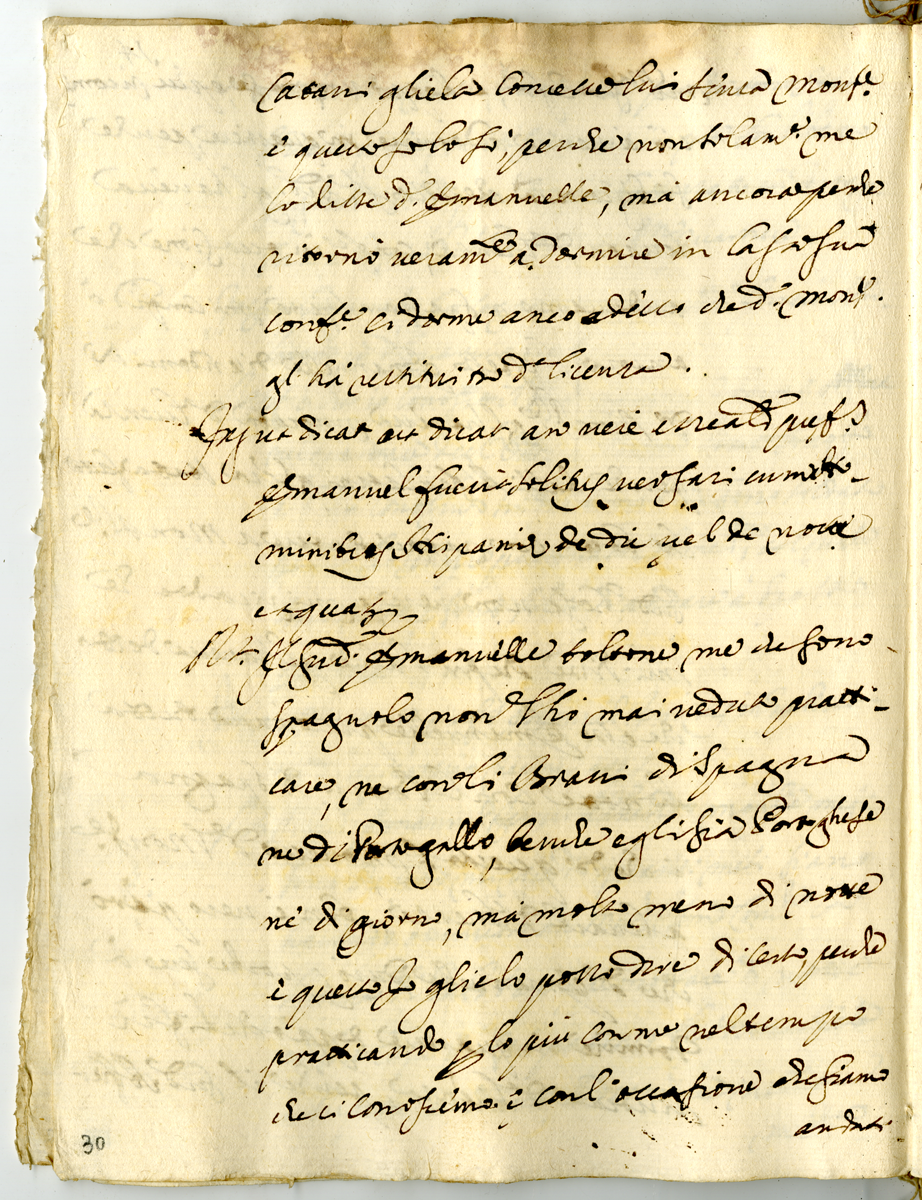 Catani gliela concesse lui senza Mons.re
e questo Io lo sò, perche non solam.te me
lo disse d.o Emanuelle, mà ancora perche
ritornò veram.te a dormire in
conf.e ci dorme anco adesso che d.o Mons.re
gl'hà restituito d.a licenza.
Int.s ut dicat aut dicat an vere et realr pref.s
Emanuel fuerit solitus versari cum
minibus Hispanis de die vel de nocte
et quatr
R.t Il sud.o Emanuelle toltone me che sono
spagnolo non l'hò mai veduto pratti-
care, ne con li Bravi di Spagna
ne di Portogallo, benche egli sia Portoghese
nè di giorno, mà molto meno di notte
e questo Io glielo posso dire di certo, perche
pratticando p lo più con me nel tempo
che ci conoscemo, e con l'occasione che siamo
andati
30